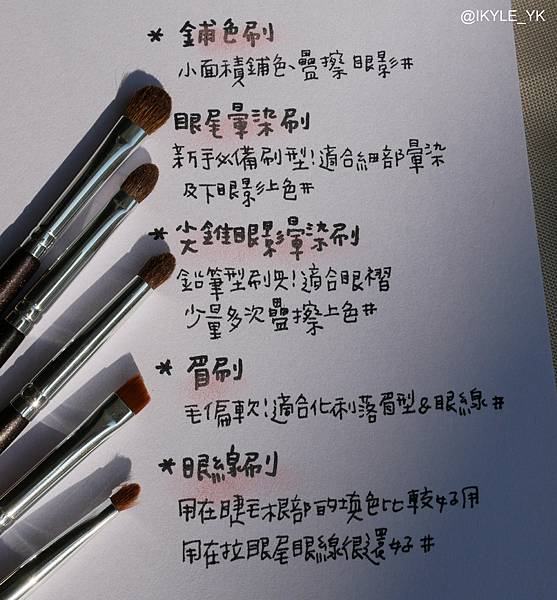 @IKYLE_YK
* 鋪色刷
小面積鋪色、疊擦眼影#
眼尾暈染刷
新手必備刷型!適合細部暈染
及下眼影上色#
* 尖錐眼影暈染刷
鉛筆型刷具!適合眼褶
少量多次疊擦上色#
* 眉刷
毛偏軟!適合化利落眉型&眼線#
* 眼線刷
用在睫毛根部的填色比較好用
用在拉眼尾眼線很還好#